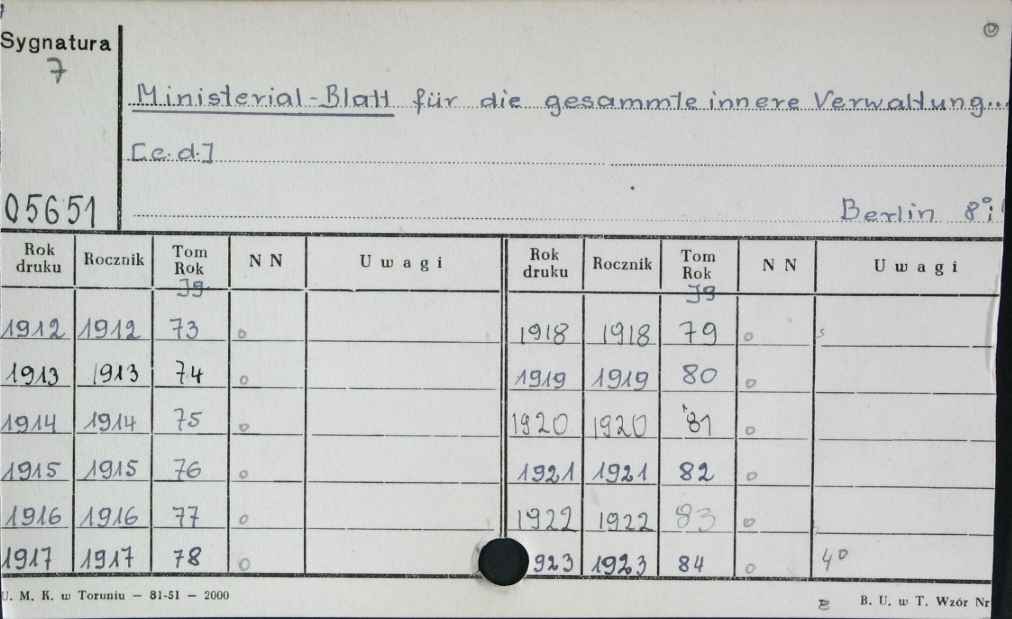 Sygnatura
7
Ministerial-Blatt für die gesammte innere Verwaltung...
[c.d.]
05651
Berlin 8°
Rok druku Rocznik Tom Rok NN Uwagi Rok druku Rocznik Tom Rok NN Uwagi
Jg. Jg
1912 1912 73 o 1918 1918 79 o s
1913 1913 74 o 1919 1919 80 o
1914 1914 75 o 1920 1920 81 o
1915 1915 76 o 1921 1921 82 o
1916 1916 77 o 1922 1922 83 o
1917 1917 78 o 923 1923 84 o 4°
U. M. K. w Toruniu — 81-51 — 2000
B. U. w T. Wzór Nr